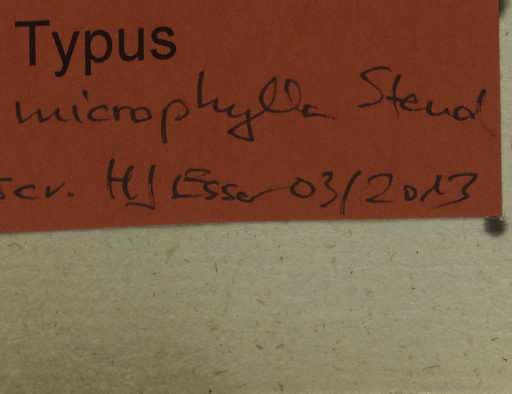 Typus
microphylla Steud
scr. HJ Esser 03/2013